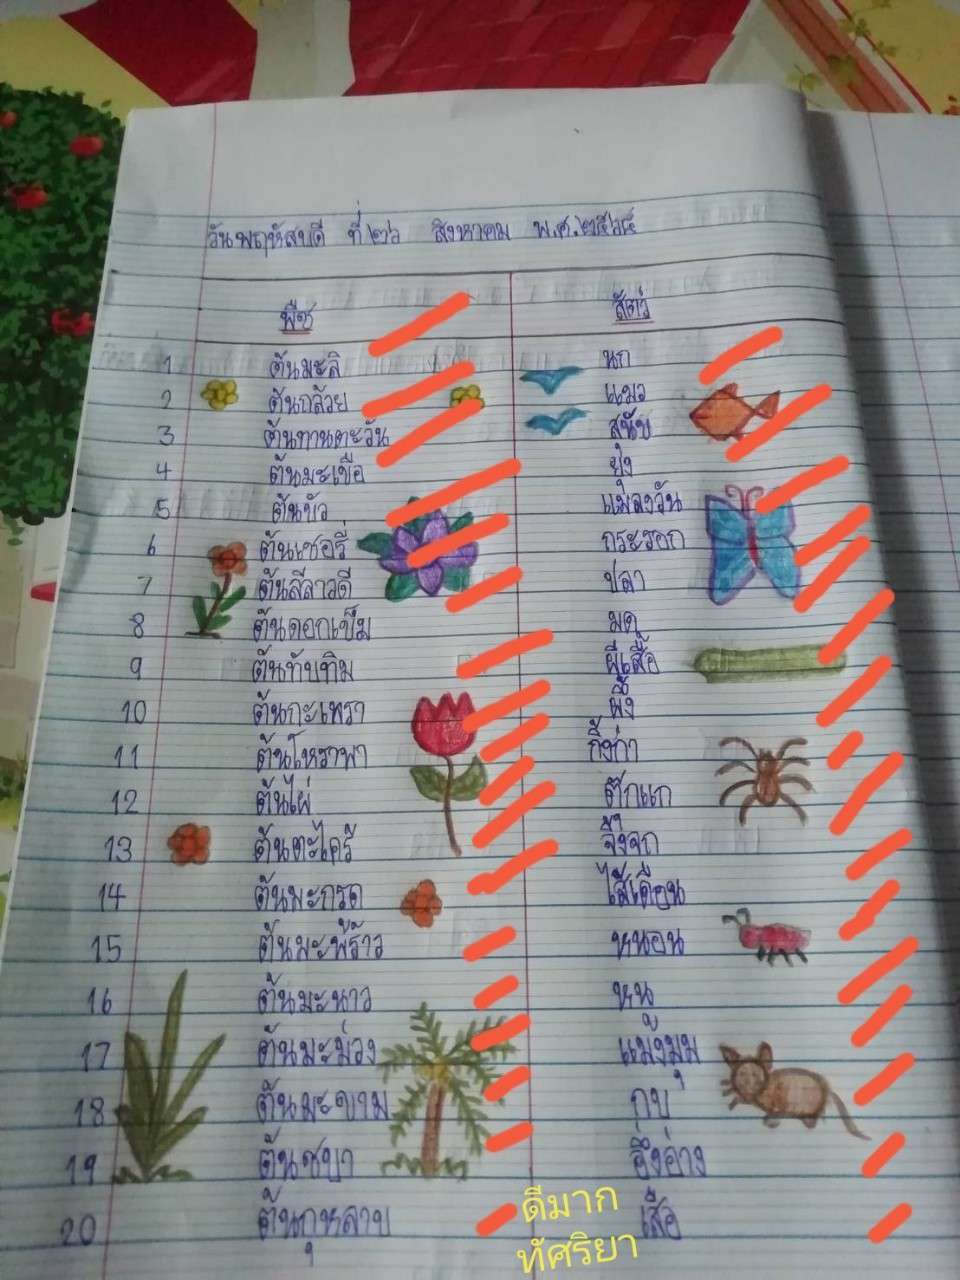 วันพฤหัสบดี ที่ ๒๖ สิงหาคม พ.ศ. ๒๕๖๔
พืช สัตว์
1 ต้นมะลิ นก
2 ต้นกล้วย แมว
3 ต้นทานตะวัน สุนัข
4 ต้นมะเขือ ยุง
5 ต้นบัว แมลงวัน
6 ต้นเชอรี่ กระรอก
7 ต้นลีลาวดี ปลา
8 ต้นดอกเข็ม มด
9 ต้นทับทิม ผีเสื้อ
10 ต้นกะเพรา ผึ้ง
11 ต้นโหราพา กิ้งก่า
12 ต้นไผ่ ตุ๊กแก
13 ต้นตะไคร้ จิ้งจก
14 ต้นมะกรูด ไส้เดือน
15 ต้นมะพร้าว หนอน
16 ต้นมะนาว หนู
17 ต้นมะม่วง แมงมุม
18 ต้นมะขาม กบ
19 ต้นชบา อึ่งอ่าง
20 ต้นกุหลาบ เสือ
ดีมาก
ทัศริยา